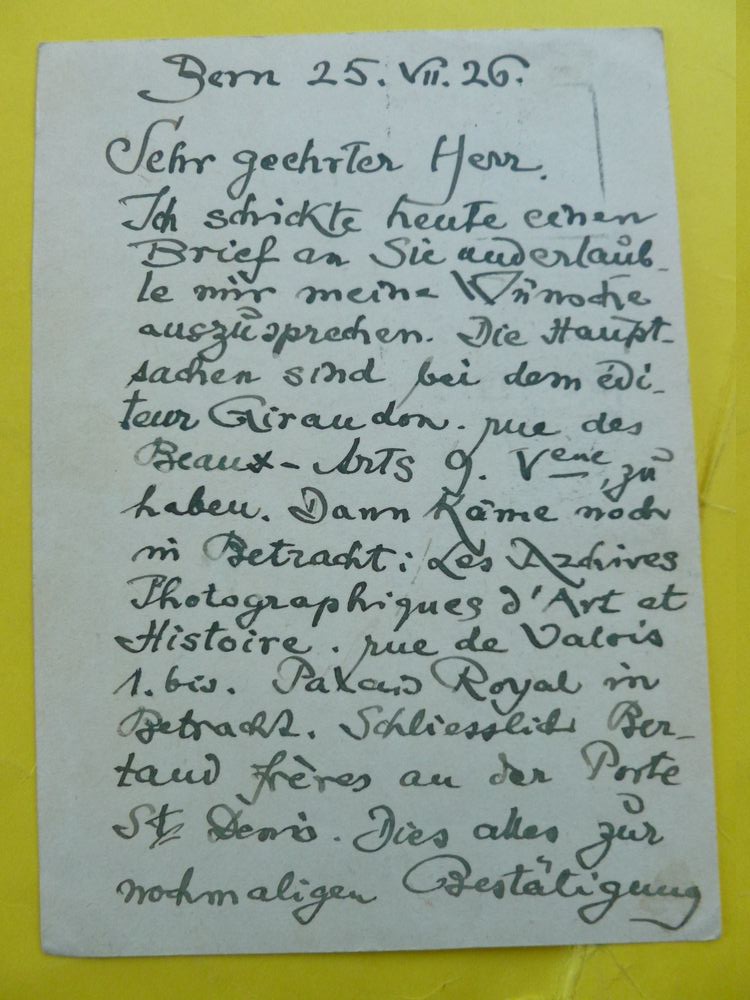 Bern 25. VII. 26.
Sehr geehrter Herr.
Ich schickte heute einen
Brief an Sie und erlaub-
te mir meine Wünsche
auszusprechen. Die Haupt-
sachen sind bei dem édi-
teur Giraudon. rue des
Beaux-Arts 9. Veme, zu
haben. Dann käme noch
in Betracht: Les Archives
Photographiques d'Art et
Histoire. rue de Valois
1. bis. Palais Royal in
Betracht. Schliesslich Ber-
taud frères an der Porte
St. Denis. Dies alles zur
nochmaligen Bestätigung